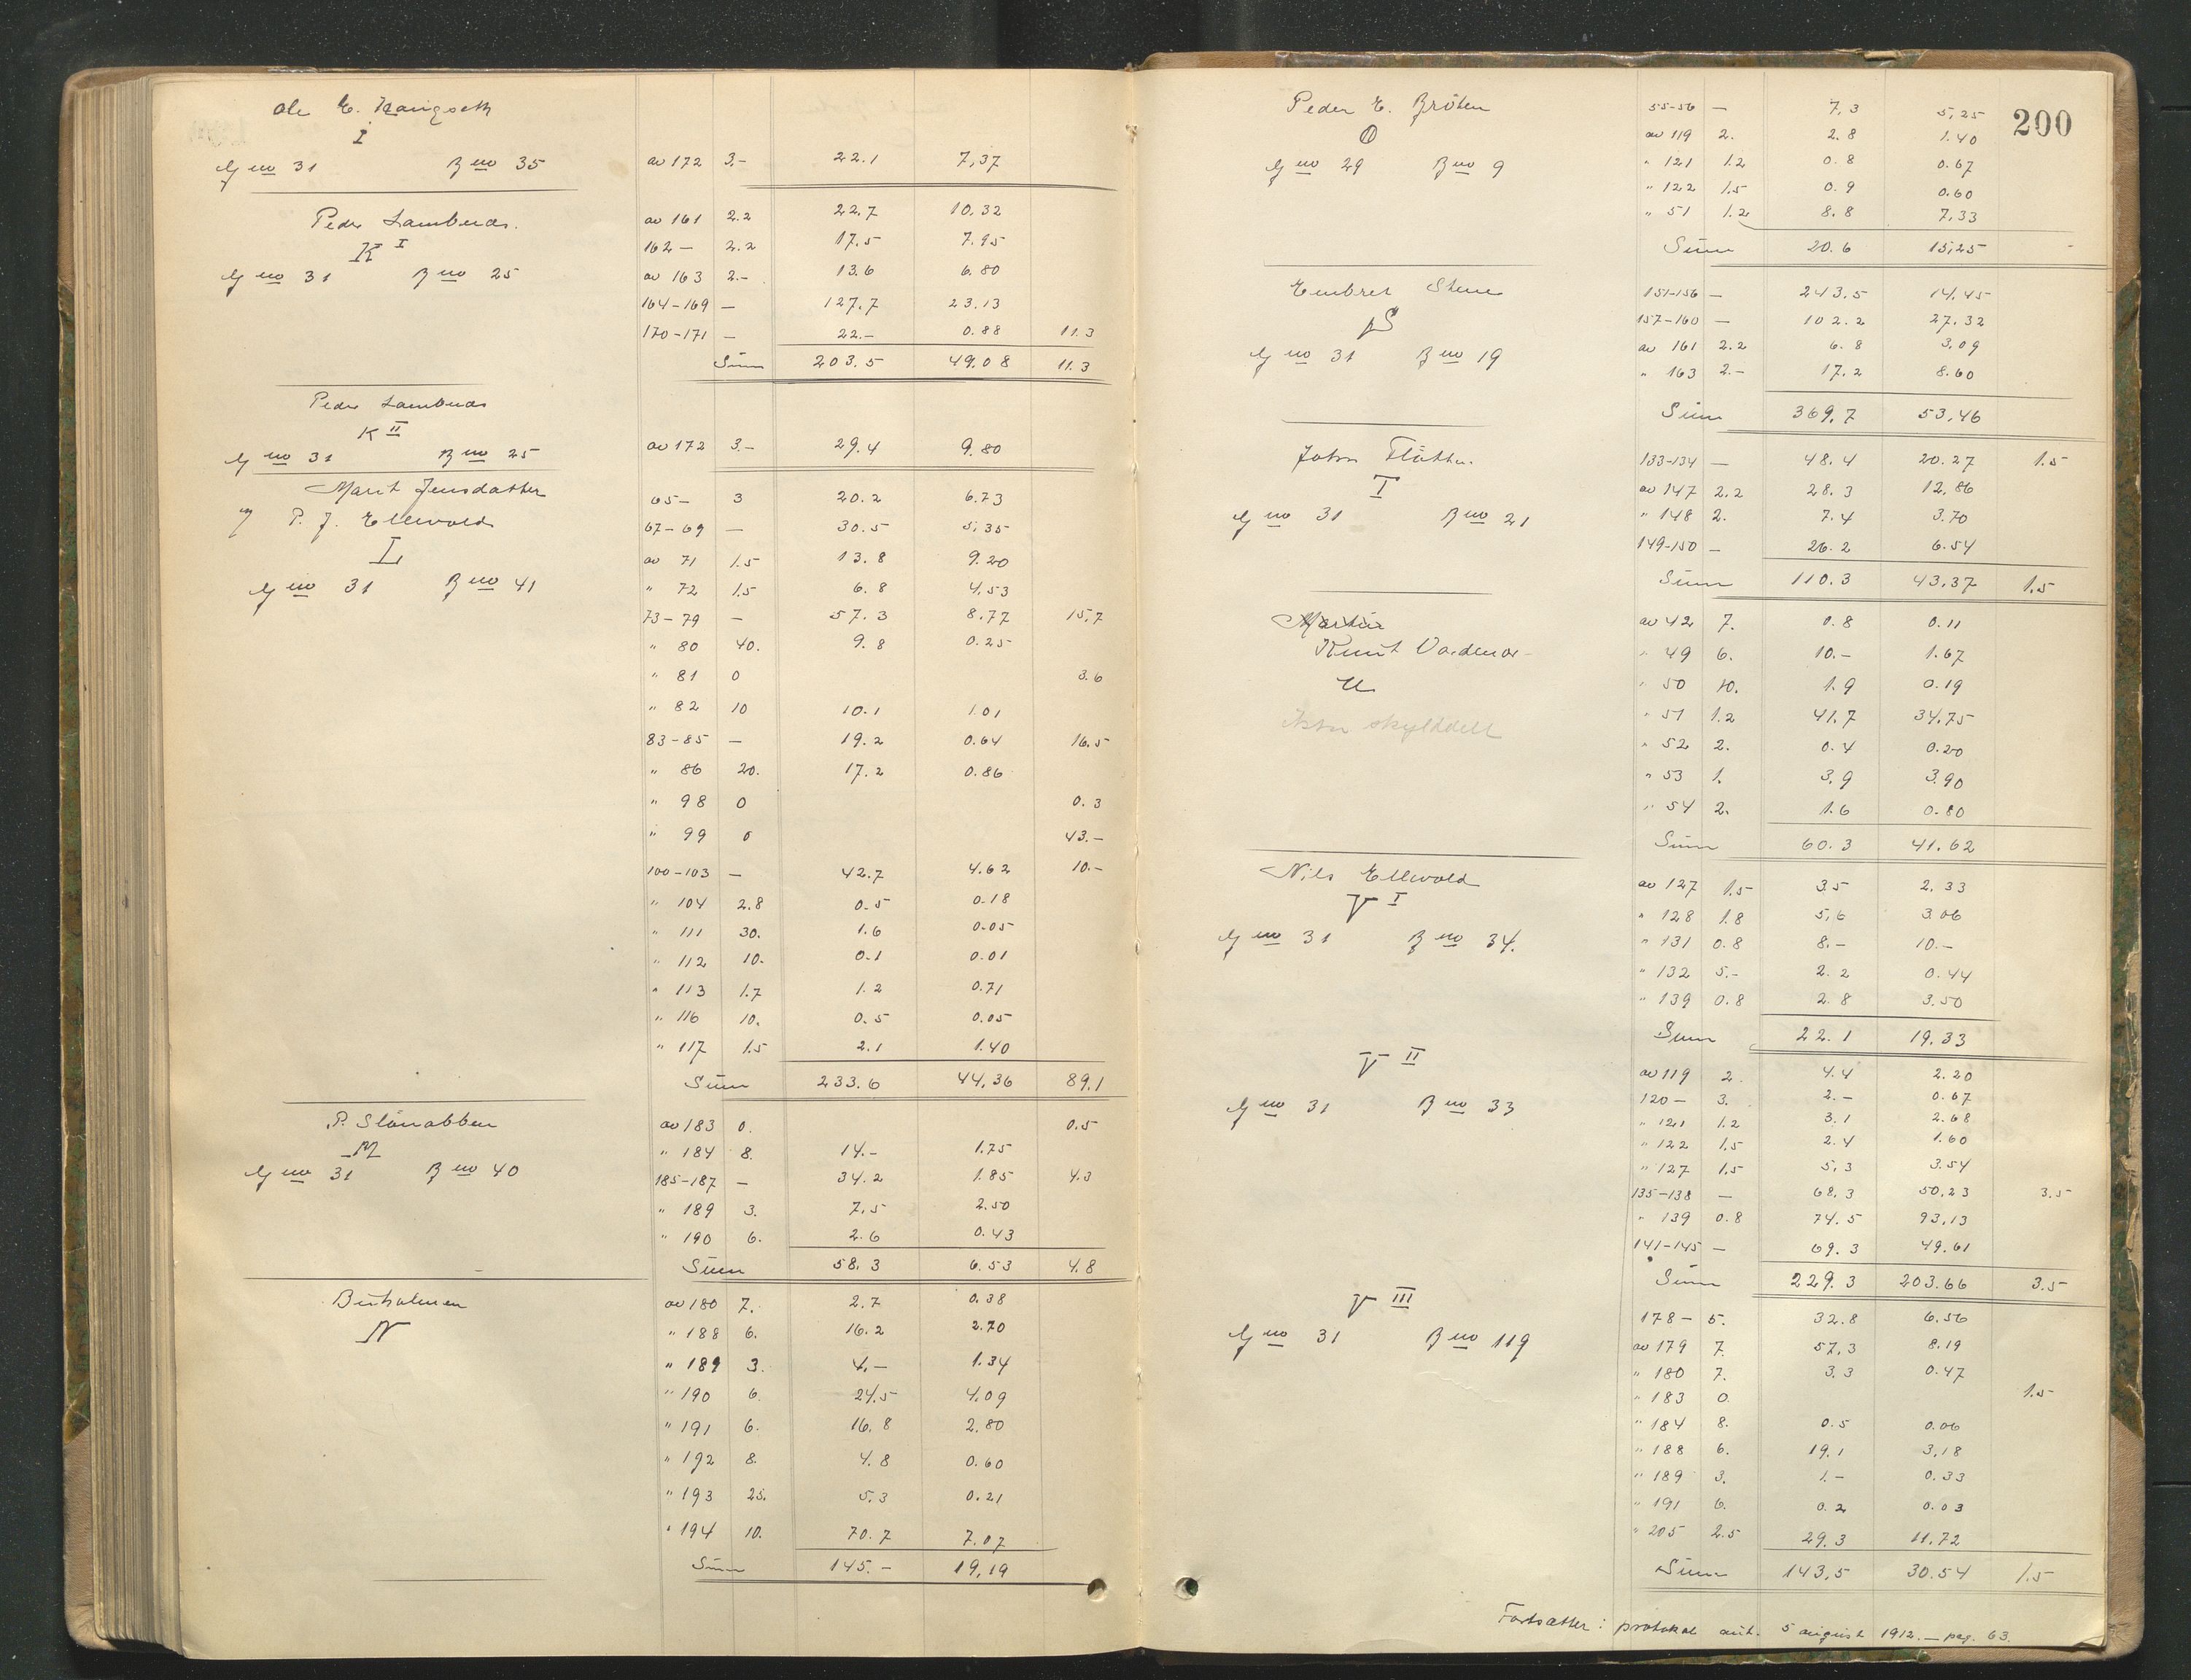 Ole E.
I
G no 31 B no 35 av 172 3.- 22.1 7,37
Peder Lambues. av 161 2.2 22.7 10.32
K I 162 — 2.2 17.5 7.95
G no 31 B no 25 av 163 2.- 13.6 6.80
164-169 — 127.7 23.13
170-171 — 22.- 0.88 11.3
Sum 203.5 49.08 11.3
Peder Lambues
K II
G no 31 B no 25 av 172 3.- 29.4 9.80
Marit Jensdatter 65- 3 20.2 6.73
P. J. Ellevold 67-69 — 30.5 5,35
L av 71 1.5 13.8 9.20
G no 31 B no 41 " 72 1.5 6.8 4.53
73-79 - 57.3 8.77 15,7
" 80 40. 9.8 0.25
" 81 0 3.6
" 82 10 10.1 1.01
83-85 — 19.2 0.64 16.5
" 86 20. 17.2 0.86
" 98 0 0.3
" 99 0 43.-
100-103 — 42.7 4.62 10.-
" 104 2.8 0.5 0.18
" 111 30. 1.6 0.05
" 112 10. 0.1 0.01
" 113 1.7 1.2 0.71
" 116 10. 0.5 0.05
" 117 1.5 2.1 1.40
Sum 233.6 44,36 89,1
P. Slånabben av 183 0. 0.5
M " 184 8. 14.- 1.75
G no 31 B no 40 185-187 — 34.2 1.85 4.3
" 189 3. 7.5 2.50
" 190 6. 2.6 0.43
Sum 58.3 6.53 4.8
av 180 7. 2.7 0.38
N " 188 6. 16.2 2.70
" 189 3. 4.- 1.34
" 190 6. 24.5 4.09
" 191 6. 16.8 2.80
" 192 8. 4.8 0.60
" 193 25. 5.3 0.21
" 194 10. 70.7 7.07
Sum 145.- 19,19
200
Peder E. Bröten 55-56 — 7,3 5,25
O av 119 2. 2.8 1.40
G no 29 B no 9 " 121 1.2 0.8 0.67
" 122 1.5 0.9 0.60
" 51 1.2 8.8 7,33
Sum 20.6 15,25
Embret Stene 151-156 — 243.5 14.45
S 157-160 — 102.2 27.32
G no 31 B no 19 av 161 2.2 6.8 3,09
" 163 2.- 17.2 8.60
Sum 369,7 53,46
John Flåten. 133-134 — 48.4 20.27 1.5
T av 147 2.2 28.3 12,86
G no 31 B no 21 " 148 2. 7.4 3.70
149-150 — 26.2 6.54
Sum 110.3 43,37 1,5
Martin av 42 7. 0.8 0.11
Knut " 49 6. 10.- 1.67
U " 50 10. 1.9 0.19
skylddelt " 51 1.2 41.7 34.75
" 52 2. 0.4 0.20
" 53 1. 3,9 3.90
" 54 2. 1.6 0.80
Sum 60.3 41.62
Nils Ellevold av 127 1.5 3.5 2.33
V I " 128 1.8 5,6 3.06
G no 31 B no 34. " 131 0.8 8.- 10.-
" 132 5.- 2.2 0.44
" 139 0.8 2.8 3.50
Sum 22.1 19.33
V II av 119 2. 4.4 2.20
G no 31 B no 33 120 — 3. 2.- 0.67
" 121 1.2 3.1 2.68
" 122 1,5 2.4 1.60
" 127 1,5 5,3 3.54
135-138 — 68.3 50.23 3.5
" 139 0.8 74.5 93,13
141-145 — 69.3 49.61
Sum 229.3 203.66 3.5
V III 178 - 5. 32.8 6.56
G no 31 B no 119 av 179 7. 57.3 8.19
" 180 7. 3.3 0.47
" 183 0. 1.5
" 184 8. 0.5 0.06
" 188 6. 19.1 3,18
" 189 3. 1.- 0.33
" 191 6. 0.2 0.03
" 205 2.5 29.3 11.72
Sum 143,5 30.54 1.5
Fortsætter i protokol aut. 5 august 1912. — pag. 63.